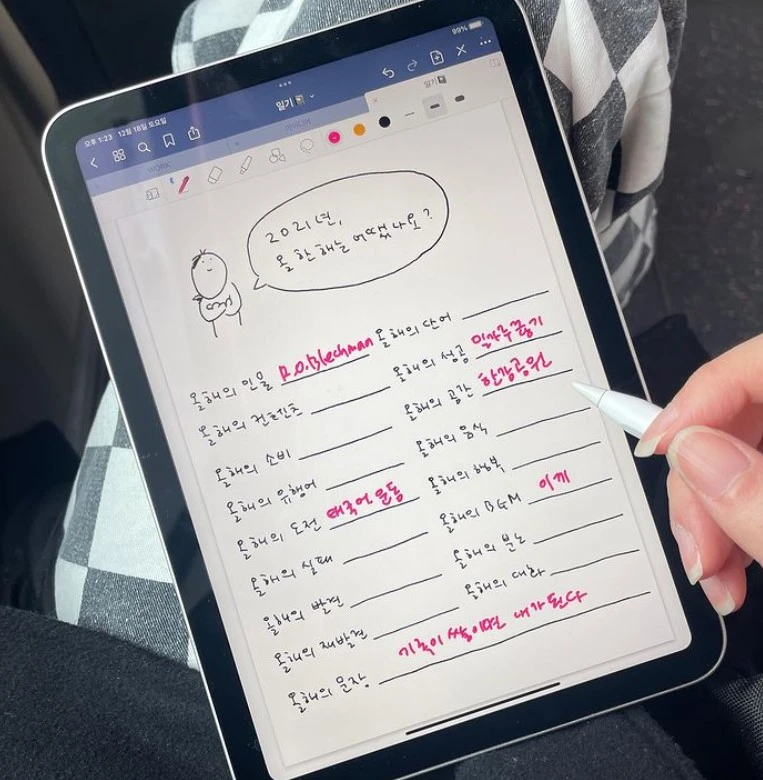 오후 1:23 12월 18일 토요일
99%
일기
일기
2021년,
올 한 해는 어땠나요?
올해의 인물 R.O.Blechman 올해의 단어
올해의 컨텐츠 올해의 성공 일자루 뚫기
올해의 소비 올해의 공간 한강공원
올해의 유행어 올해의 음식
올해의 도전 태국어, 운동 올해의 행복
올해의 실패 올해의 BGM 이끼
올해의 발견 올해의 분노
올해의 재발견 올해의 대화
올해의 문장 기록이 쌓이면 내가 된다